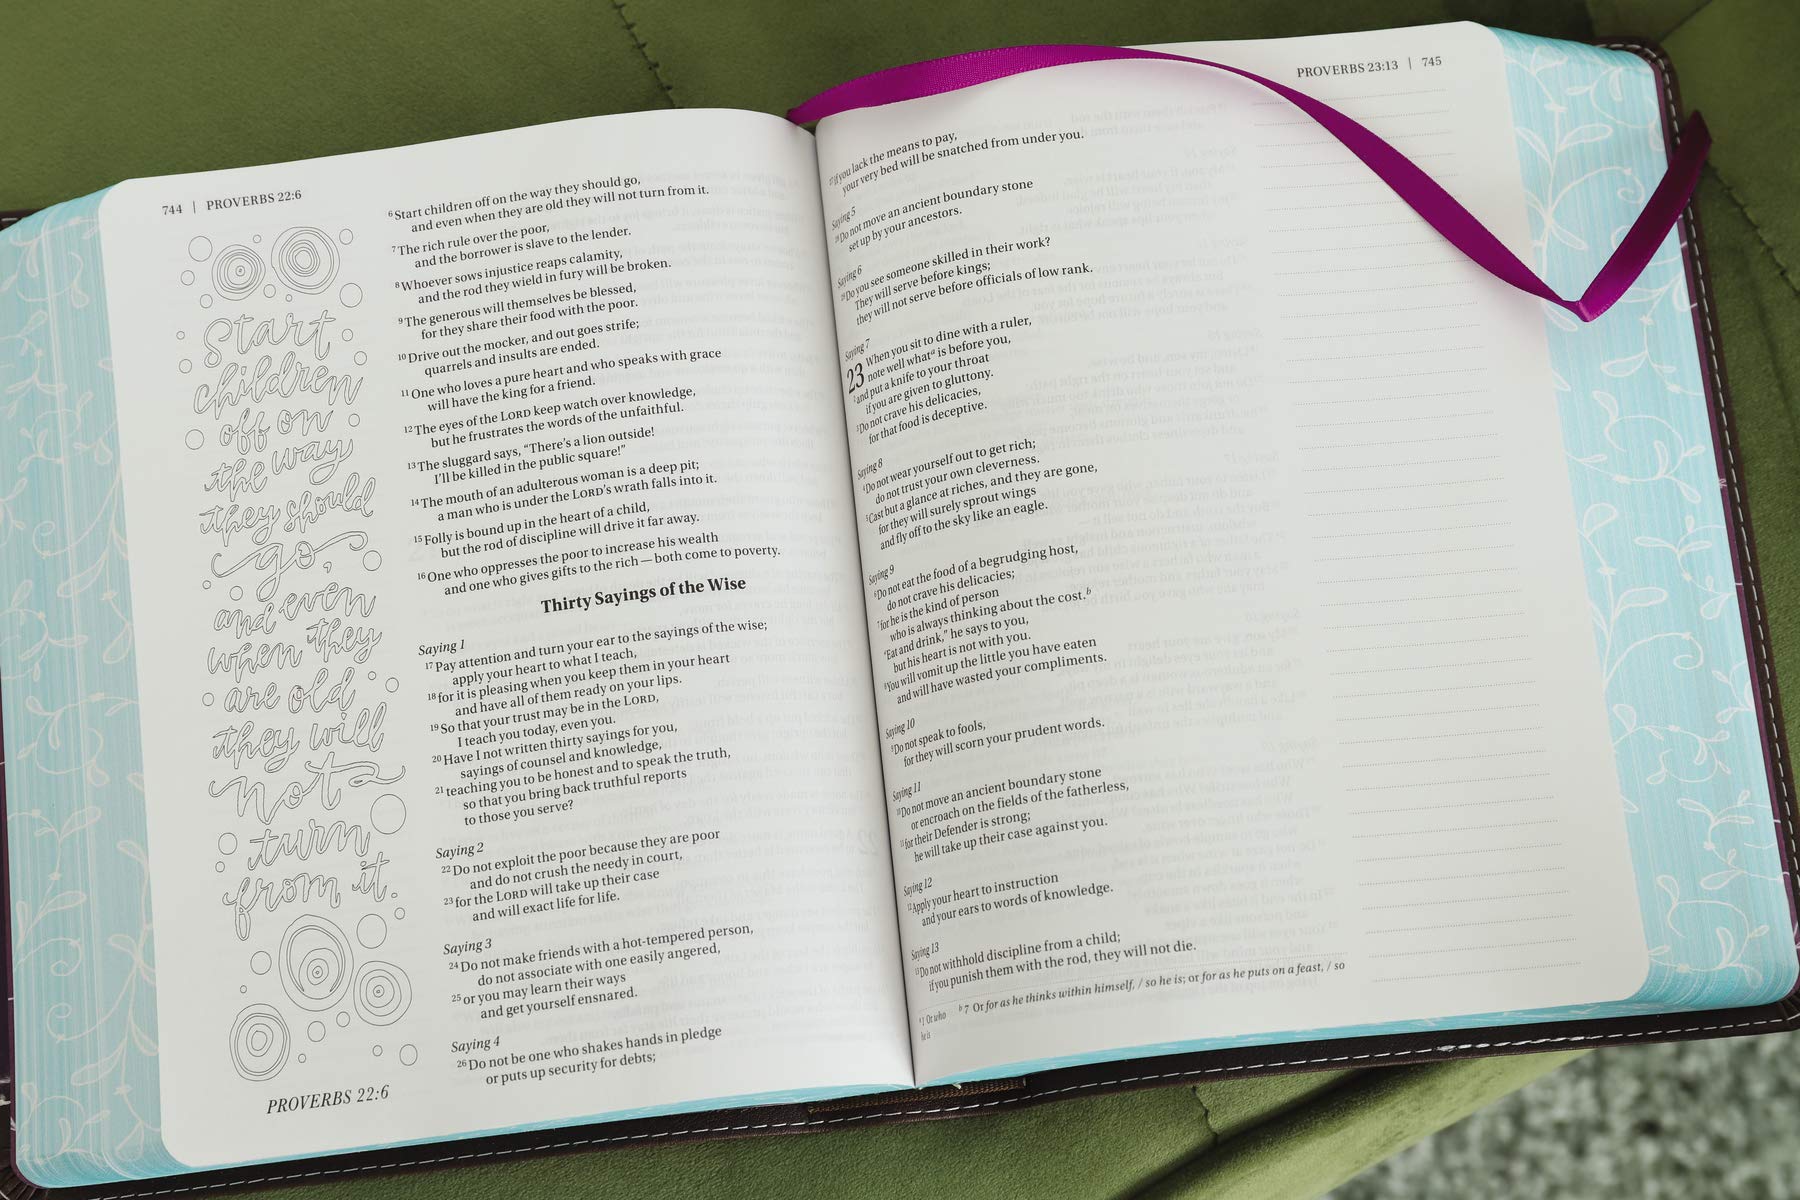 744 | PROVERBS 22:6
Start
children
off on
the way
they should
go,
and even
when they
are old
they will
not
turn
from it.
PROVERBS 22:6
6 Start children off on the way they should go,
and even when they are old they will not turn from it.
7 The rich rule over the poor,
and the borrower is slave to the lender.
8 Whoever sows injustice reaps calamity,
and the rod they wield in fury will be broken.
9 The generous will themselves be blessed,
for they share their food with the poor.
10 Drive out the mocker, and out goes strife;
quarrels and insults are ended.
11 One who loves a pure heart and who speaks with grace
will have the king for a friend.
12 The eyes of the LORD keep watch over knowledge,
but he frustrates the words of the unfaithful.
13 The sluggard says, “There’s a lion outside!
I’ll be killed in the public square!”
14 The mouth of an adulterous woman is a deep pit;
a man who is under the LORD’s wrath falls into it.
15 Folly is bound up in the heart of a child,
but the rod of discipline will drive it far away.
16 One who oppresses the poor to increase his wealth
and one who gives gifts to the rich — both come to poverty.
Thirty Sayings of the Wise
Saying 1
17 Pay attention and turn your ear to the sayings of the wise;
apply your heart to what I teach,
18 for it is pleasing when you keep them in your heart
and have all of them ready on your lips.
19 So that your trust may be in the LORD,
I teach you today, even you.
20 Have I not written thirty sayings for you,
sayings of counsel and knowledge,
21 teaching you to be honest and to speak the truth,
so that you bring back truthful reports
to those you serve?
Saying 2
22 Do not exploit the poor because they are poor
and do not crush the needy in court,
23 for the LORD will take up their case
and will exact life for life.
Saying 3
24 Do not make friends with a hot-tempered person,
do not associate with one easily angered,
25 or you may learn their ways
and get yourself ensnared.
Saying 4
26 Do not be one who shakes hands in pledge
or puts up security for debts;
PROVERBS 23:13 | 745
27 if you lack the means to pay,
your very bed will be snatched from under you.
Saying 5
28 Do not move an ancient boundary stone
set up by your ancestors.
Saying 6
29 Do you see someone skilled in their work?
They will serve before kings;
they will not serve before officials of low rank.
Saying 7
23 When you sit to dine with a ruler,
note well what a is before you,
2 and put a knife to your throat
if you are given to gluttony.
3 Do not crave his delicacies,
for that food is deceptive.
Saying 8
4 Do not wear yourself out to get rich;
do not trust your own cleverness.
5 Cast but a glance at riches, and they are gone,
for they will surely sprout wings
and fly off to the sky like an eagle.
Saying 9
6 Do not eat the food of a begrudging host,
do not crave his delicacies;
7 for he is the kind of person
who is always thinking about the cost. b
“Eat and drink,” he says to you,
but his heart is not with you.
8 You will vomit up the little you have eaten
and will have wasted your compliments.
Saying 10
9 Do not speak to fools,
for they will scorn your prudent words.
Saying 11
10 Do not move an ancient boundary stone
or encroach on the fields of the fatherless,
11 for their Defender is strong;
he will take up their case against you.
Saying 12
12 Apply your heart to instruction
and your ears to words of knowledge.
Saying 13
13 Do not withhold discipline from a child;
if you punish them with the rod, they will not die.
a 1 Or who b 7 Or for as he thinks within himself, / so he is; or for as he puts on a feast, / so
he is